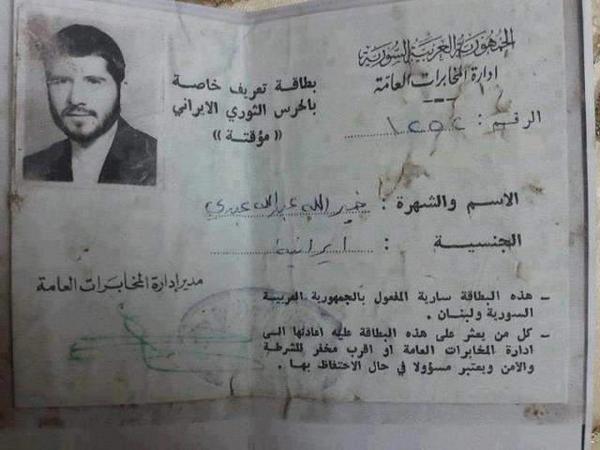 الجمهورية العربية السورية
ادارة المخابرات العامة
---
الرقم :
بطاقة تعريف خاصة
بالحرس الثوري الايراني
« مؤقتة »
الاسم والشهرة : خير الله عبدالله عبدي
الجنسية : ايرانية
مدير ادارة المخابرات العامة
ـ هذه البطاقة سارية المفعول بالجمهورية العربية
السورية ولبنان .
ـ كل من يعثر على هذه البطاقة عليه اعادتها الى
ادارة المخابرات العامة او اقرب مخفر للشرطة
والأمن ويعتبر مسؤولا في حال الاحتفاظ بها .